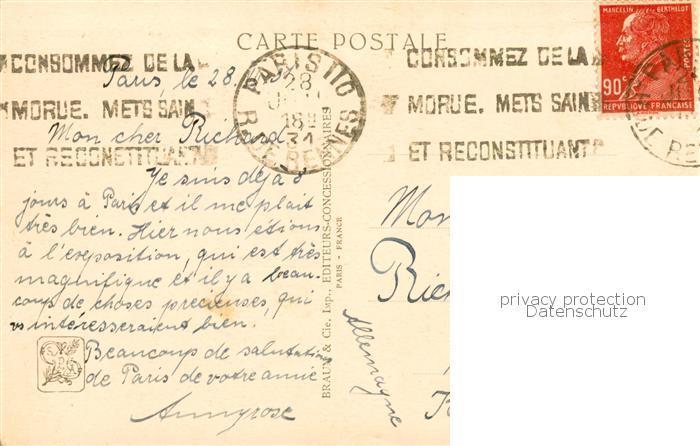 CARTE POSTALE
CONSOMMEZ DE LA
MORUE. METS SAIN
ET RECONSTITUANT
PARIS 110
28
18
31
R. DE RENNES
CONSOMMEZ DE LA
MORUE. METS SAIN
ET RECONSTITUANT
MARCELIN BERTHELOT
90c
RÉPUBLIQUE FRANÇAISE
DE RE
Paris, le 28.
Mon cher Richard
Je suis déjà 8
jours à Paris et il me plait
très bien. Hier nous étions
à l'exposition, qui est très
magnifique et il y a beau-
coup de choses precieuses, qui
vs intéresseraient bien.
Beaucoup de salutations
de Paris de votre amie
Annyrose
BRAUN & Cie, Imp., EDITEURS-CONCESSIONNAIRES
PARIS - FRANCE
Mon
Allemagne
privacy protection
Datenschutz